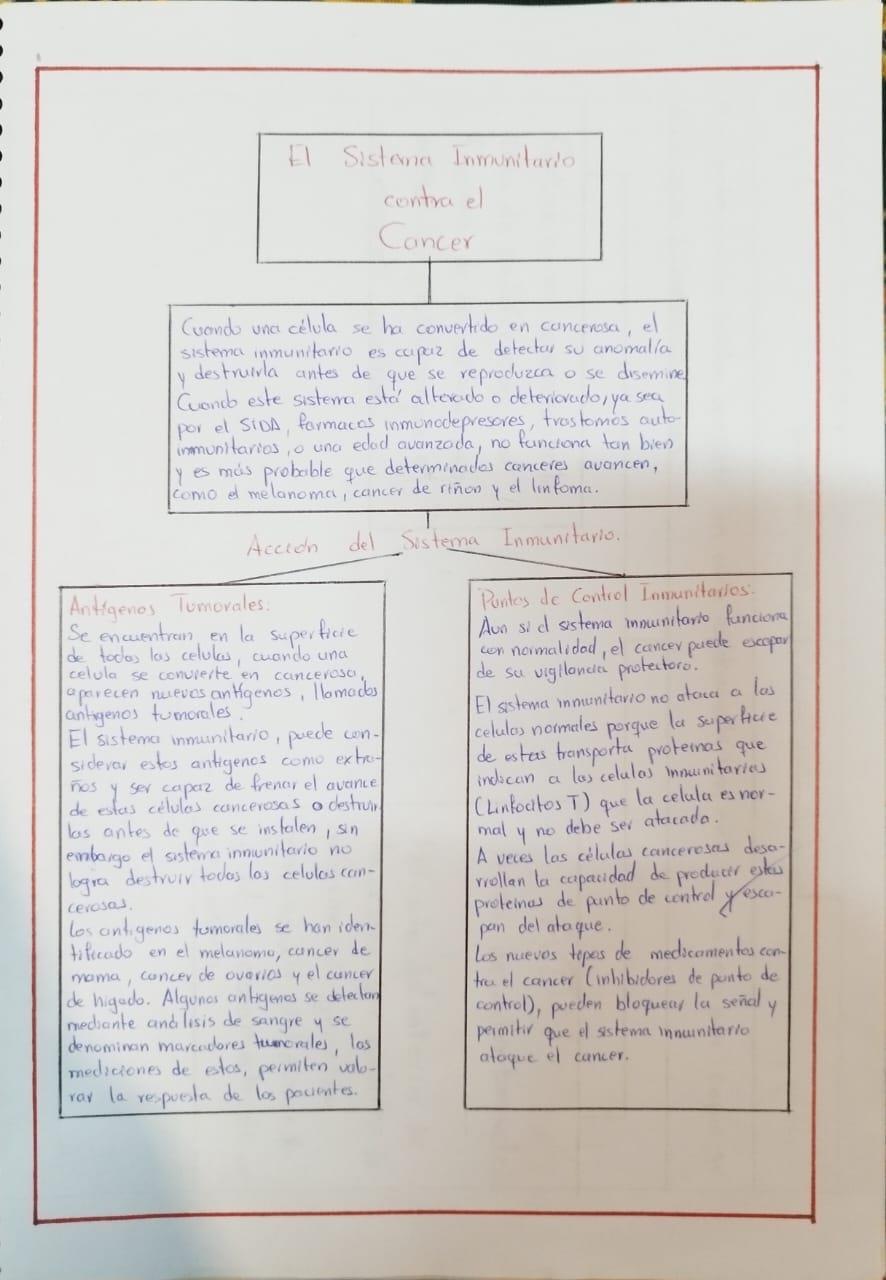 El Sistema Inmunitario
contra el
Cancer
Cuando una célula se ha convertido en cancerosa, el
sistema inmunitario es capaz de detectar su anomalía
y destruirla antes de que se reproduzca o se disemine
Cuando este sistema está alterado o deteriorado, ya sea
por el SIDA, farmacos inmunodepresores, trastornos auto-
inmunitarios, o una edad avanzada, no funciona tan bien
y es más probable que determinados canceres avancen,
como el melanoma, cancer de riñon y el linfoma.
Acción del Sistema Inmunitario.
Antígenos Tumorales:
Se encuentran en la superficie
de todas las celulas, cuando una
celula se convierte en cancerosa,
aparecen nuevos antígenos, llamados
antigenos tumorales.
El sistema inmunitario, puede con-
siderar estos antigenos como extra-
ños y ser capaz de frenar el avance
de estas células cancerosas o destruir
las antes de que se instalen, sin
embargo el sistema inmunitario no
logra destruir todas las celulas can-
cerosas.
Los antigenos tumorales se han iden-
tificado en el melanoma, cancer de
mama, cancer de ovarios y el cancer
de higado. Algunos antigenos se detectan
mediante análisis de sangre y se
denominan marcadores tumorales, las
mediciones de estos, permiten valo-
rar la respuesta de los pacientes.
Puntos de Control Inmunitarios:
Aun si el sistema inmunitario funciona
con normalidad, el cancer puede escapar
de su vigilancia protectora.
El sistema inmunitario no ataca a las
celulas normales porque la superficie
de estas transporta proteinas que
indican a las celulas inmunitarias
(Linfocitos T) que la celula es nor-
mal y no debe ser atacada.
A veces las células cancerosas desa-
rrollan la capacidad de producir estas
proteinas de punto de control y esca-
pan del ataque.
Los nuevos tipos de medicamentos con-
tra el cancer (inhibidores de punto de
control), pueden bloquear la señal y
permitir que el sistema inmunitario
ataque el cancer.